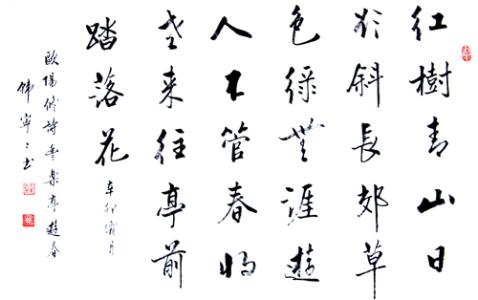 红樹青山日
欲斜長郊草
色綠無涯遊
人不管春将
老来往亭前
踏落花
辛卯霜月
歐陽修詩豐樂亭遊春